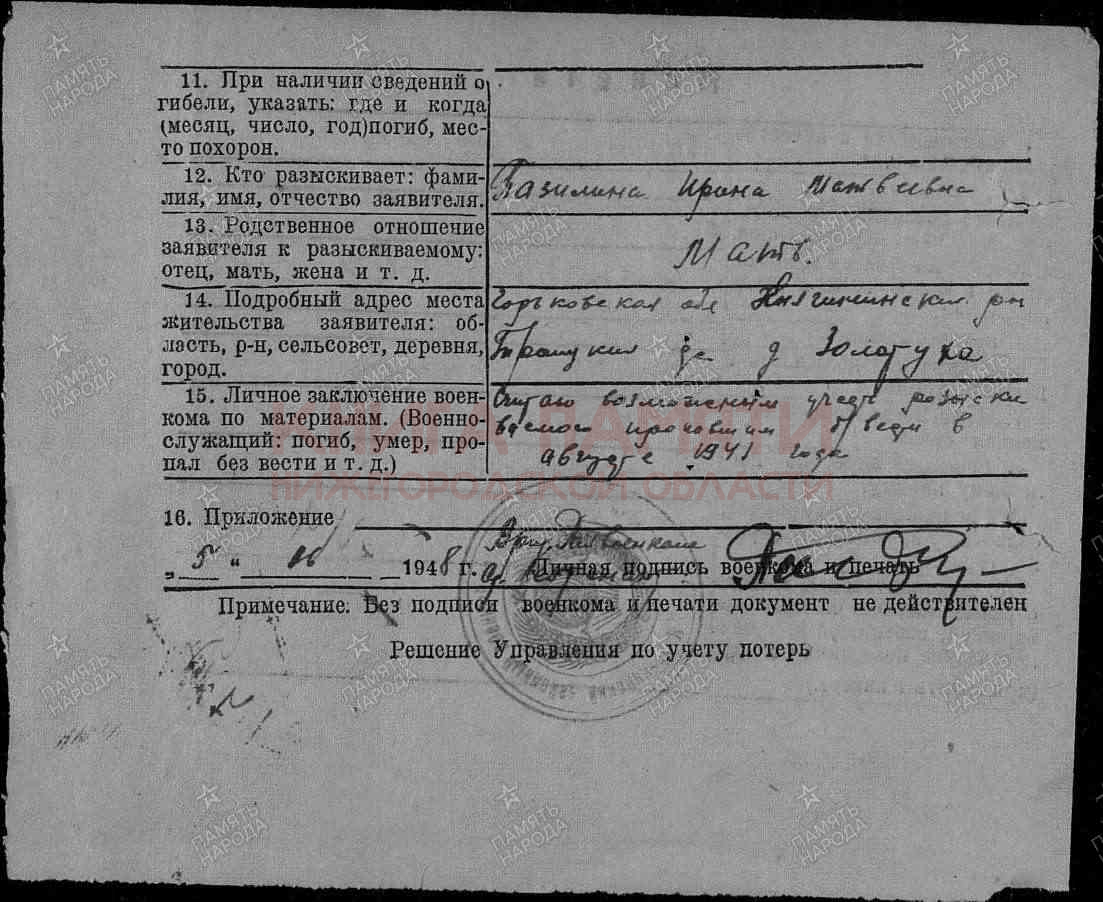 11. При наличии сведений о
гибели, указать: где и когда
(месяц, число, год)погиб, мес-
то похорон.
12. Кто разыскивает: фами-
лия, имя, отчество заявителя.
Ирина Матвеевна
13. Родственное отношение
заявителя к разыскиваемому:
отец, мать, жена и т. д.
Мать.
14. Подробный адрес места
жительства заявителя: об-
ласть, р-н, сельсовет, деревня,
город.
Горьковская обл Княгининский рн
д Золотуха
15. Личное заключение воен-
кома по материалам. (Военно-
служащий: погиб, умер, про-
пал без вести и т. д.)
Считаю возможным учесть разыски
ваемого пропавшим б/вести в
августе 1941 года
КНИГА ПАМЯТИ
НИЖЕГОРОДСКОЙ ОБЛАСТИ
16. Приложение
„ 5 “ 06 1948 г.
Личная подпись военкома и печать
Примечание: Без подписи военкома и печати документ не действителен
Решение Управления по учету потерь
ПАМЯТЬ
НАРОДА